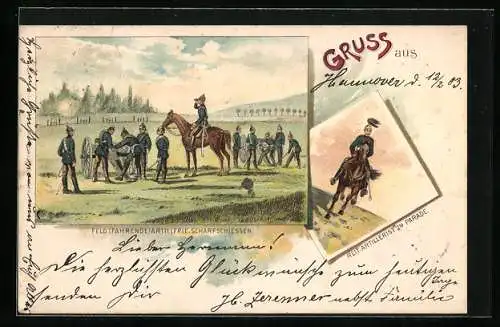 GRUSS aus
Hannover d. 12/2 03.
FELD (FAHRENDE) ARTILLERIE. SCHARFSCHIESSEN.
REIT. ARTILLERIST IN PARADE.
Lieber Hermann!
Die herzlichsten Glückwünsche zum heutigen
Tage
senden Dir
H. Zerenner nebst Familie
Herzliche Grüße